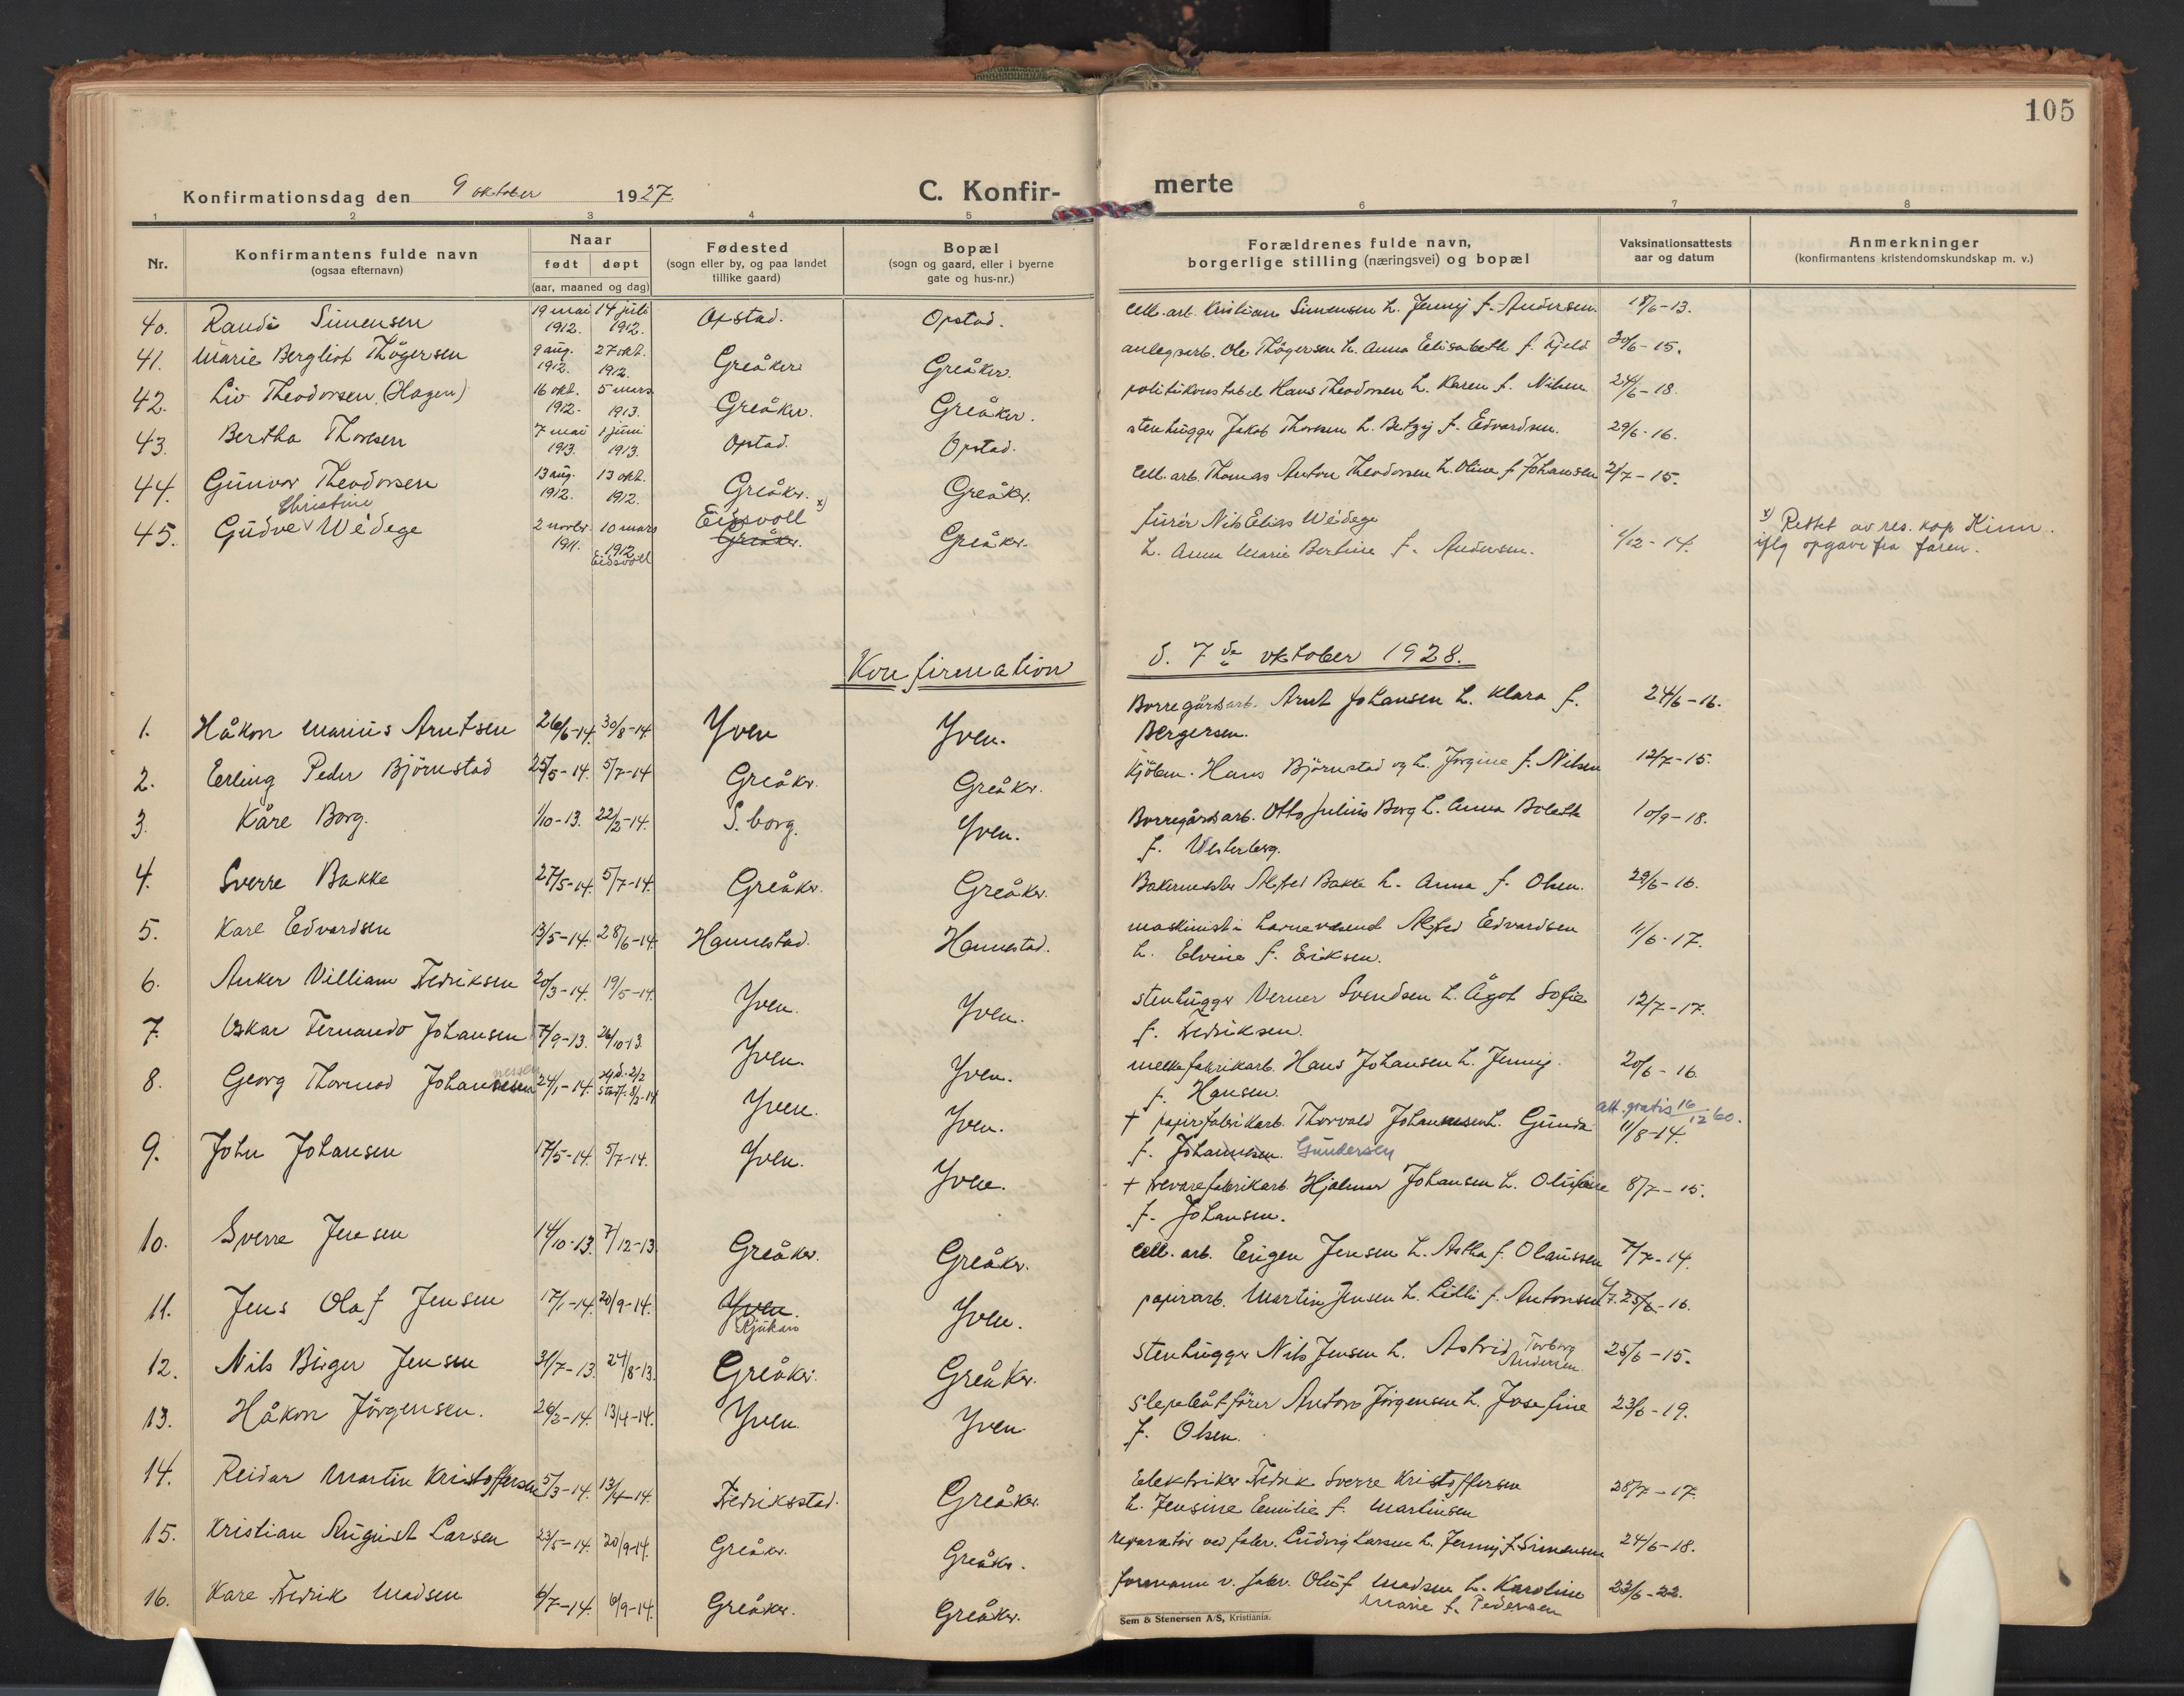 105
Konfirmationsdag den 9 oktober 1927.
C. Konfir-
merte
1 2 3 4 5 6 7 8
Nr.
Konfirmantens fulde navn
(ogsaa efternavn)
Naar
født døpt
(aar, maaned og dag)
Fødested
(sogn eller by, og paa landet
tillike gaard)
Bopæl
(sogn og gaard, eller i byerne
gate og hus-nr.)
Forældrenes fulde navn,
borgerlige stilling (næringsvei) og bopæl
Vaksinationsattests
aar og datum
Anmerkninger
(konfirmantens kristendomskundskap m. v.)
40. Randi Simensen 19 mai 1912. 14 juli 1912. Opstad. Opstad. Cell. arb. Kristian Simensen h. Jenny f. Andersen. 18/6-13.
41. Marie Bergliot Thögersen 9 aug. 1912. 27 okt. 1912. Greåker Greåker. anlegsarb. Ole Thögersen h. Anna Elisabeth f. Fjeld 30/6-15.
42. Liv Theodorsen (Hagen) 16 okt. 1912. 5 mars 1913. Greåker. Greåker. politikonstabel Hans Theodorsen h. Karen f. Nilsen 24/6-18.
43. Bertha Thorsen 7 mai 1913. 1 juni 1913. Opstad. Opstad. stenhugger Jakob Thorsen h. Betzy f. Edvardsen. 29/6-16.
44. Gunvor Theodorsen 13 aug. 1912. 13 okt. 1912. Greåker. Greåker. Cell. arb. Thomas Anton Theodorsen h. Oline f Johansen 2/7-15.
Christine
45. Gudve Wédege 2 novbr. 1911. 10 mars 1912 Eidsvoll Eidsvoll x) Greåker. Greåker. furér Nils Elias Wédege
h. Anna Marie Bertine f. Andersen. 1/12-14.
x) Rettet av res. kap Kinn.
iflg opgave fra faren.
Konfirmation d. 7de oktober 1928.
1. Håkon Marius Arntsen 26/6-14. 30/8-14. Yven Yven. Borregårdsarb. Arnt Johansen h. Klara f.
Bergersen. 24/6-16.
2. Erling Peder Björnstad 25/5-14. 5/7-14 Greåker. Greåker. Kjöbm. Hans Björnstad og h. Jörgine f. Nilsen 12/7-15.
3. Kåre Borg. 1/10-13. 22/2-14. S.borg. Yven. Borregårdsarb. Otto Julius Borg h. Anna Bolette
f. Westerberg. 10/9-18.
4. Sverre Bakke 27/5-14. 5/7-14. Greåker. Greåker. Bakermester Alfred Bakke h. Anna f. Olsen. 29/6-16.
5. Karl Edvardsen 13/5-14. 28/6-14. Hannestad. Hannestad. maskinist i havnevesenet Alfred Edvardsen
h. Elvine f. Eriksen. 11/6-17.
6. Anker Villiam Fredriksen 20/3-14. 19/5-14. Yven. Yven. stenhugger Verner Svendsen h. Ågot Sofie
f. Fredriksen. 12/7-17.
7. Oskar Fernando Johansen 7/9-13. 26/10-13. Yven. Yven. melkefabrikarb. Hans Johansen h. Jenny
f. Hansen. 20/6-16.
8. Georg Thormod Johannessen 24/1-14. hj.d. 2/2 stadf. 8/3-14 Yven. Yven. † papirfabrikarb. Thorvald Johannesen h. Gunda
f. Johannesen. Gundersen att. gratis 16/12 60. 11/8-14.
9. John Johansen 17/5-14. 5/7-14. Yven. Yven. † trevarefabrikarb. Hjalmar Johansen h. Olufine
f. Johansen. 8/7-15.
10. Sverre Jensen 14/10-13. 7/12-13. Greåker. Greåker. Cell. arb. Eugen Jensen h. Astha f. Olaussen 7/7-14.
11. Jens Olaf Jensen 17/1-14. 20/9-14. Yven. Rjukan Yven. papirarb. Martin Jensen h. Lilli f. Antonsen 25/6-16.
12. Nils Birger Jensen 31/7-13. 24/8-13. Greåker. Greåker. stenhugger Nils Jensen h. Astrid Torborg Andersen 25/6-15.
13. Håkon Jörgensen. 26/2-14. 13/4-14. Yven. Yven slepebåtförer Anton Jörgensen h. Josefine
f. Olsen. 23/6-19.
14. Reidar Martin Kristoffersen 5/3-14. 13/4-14. Fredriksstad. Greåker. Elektriker Fredrik Sverre Kristoffersen
h. Jensine Emilie f. Martinsen 28/7-17.
15. Kristian August Larsen 23/5-14. 20/9-14. Greåker. Greåker. reparatör ved fabr. Ludvig Larsen h. Jenny f. Simensen 24/6-18.
16. Kåre Fredrik Madsen 6/7-14. 6/9-14. Greåker. Greåker. formann v. fabr. Oluf Madsen h. Karoline
Marie f. Pedersen 23/6-22.
Sem & Stenersen A/S, Kristiania.